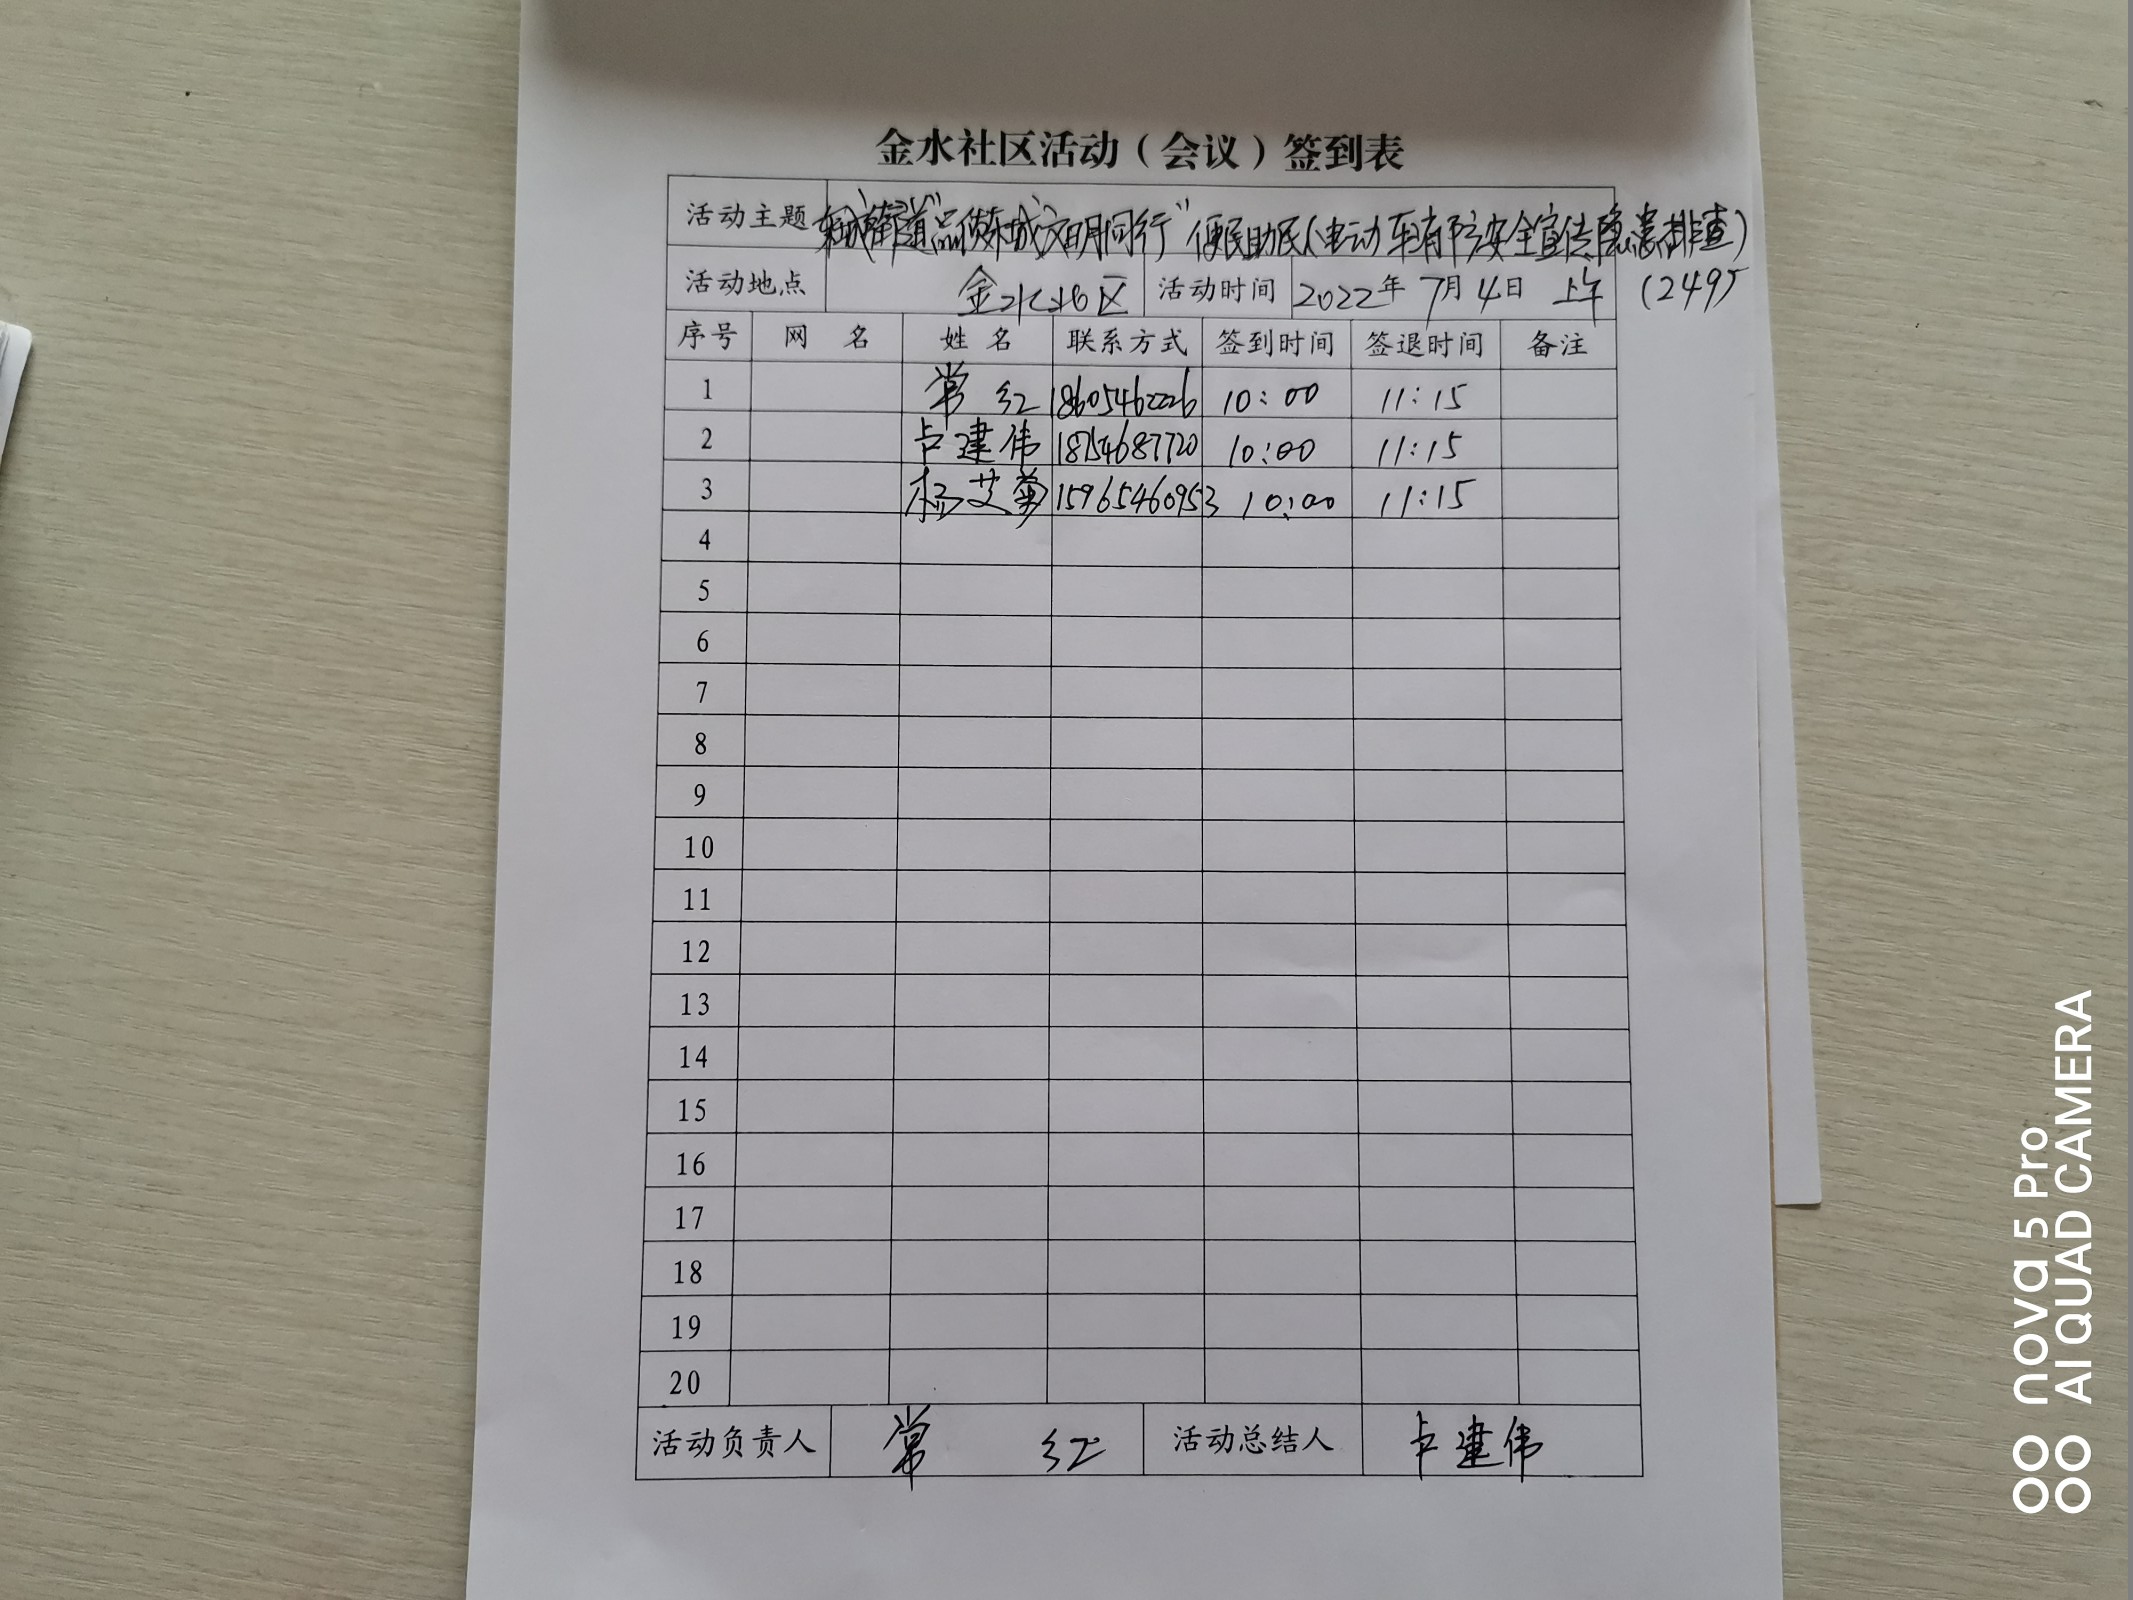 金水社区活动（会议）签到表
活动主题 东城街道"品传东城文明同行"便民助民(电动车消防安全宣传隐患排查)
活动地点 金水北区 活动时间 2022年7月4日 上午 (249)
序号 网 名 姓 名 联系方式 签到时间 签退时间 备注
1 常红 18605462226 10:00 11:15
2 卢建伟 18754687720 10:00 11:15
3 杨艾菊 15965460953 10:00 11:15
4
5
6
7
8
9
10
11
12
13
14
15
16
17
18
19
20
活动负责人 常红 活动总结人 卢建伟
nova 5 Pro
AI QUAD CAMERA